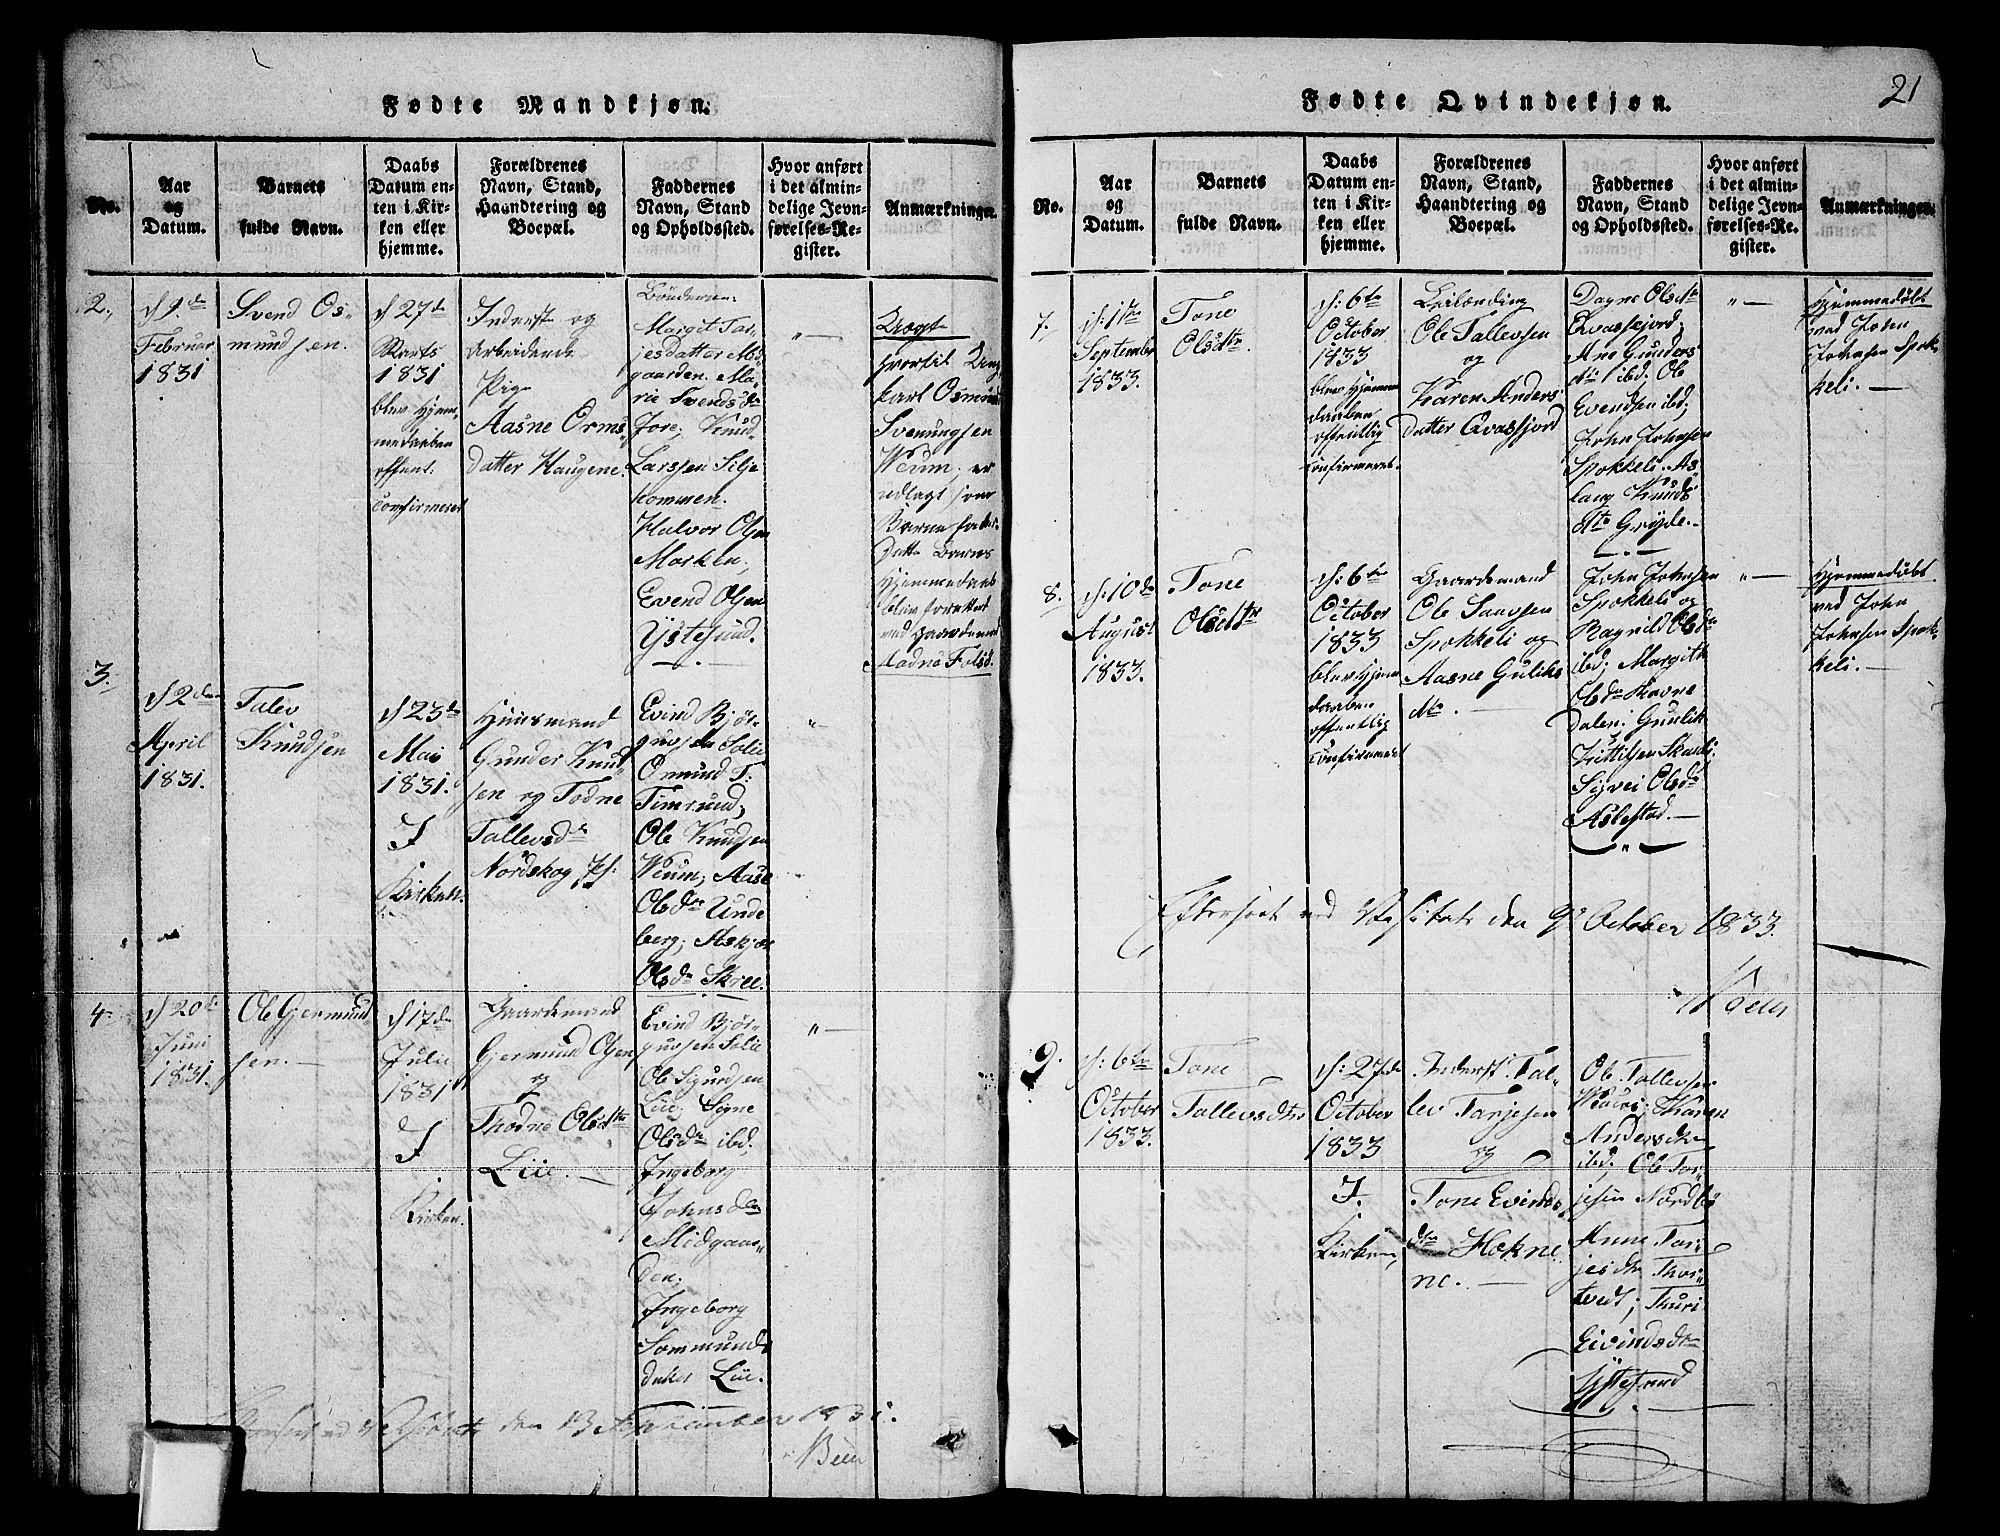 Fødte Mandkjøn.
No.
Aar
og
Datum.
Barnets
fulde Navn.
Daabs
Datum en-
ten i Kir-
ken eller
hjemme.
Forældrenes
Navn, Stand,
Haandtering og
Boepæl.
Faddernes
Navn, Stand
og Opholdssted.
Hvor anført
i det almin-
delige Jevn-
førelses-Re-
gister.
Anmærkninger.
2.
d 9de
Februar
1831
Svend Os-
mundsen.
d 27de
Marts
1831
blev Hjem-
medaaben
offent:
confirmeret
Inderst og
Arbeidende
Pige
Aasne Orms-
datter Haugene.
Bönderne:
Margit Tar-
jesdatter Mid-
gaarden. Ma-
rie Svendsdr
Fore; Knud
Larssen Silje
kommen.
Halvor Olsen
Marken;
Evend Olsen
Ystesund.
" —
Uægte
hvortil Ung
karl Osmund
Svenungsen
Weum; er
udlagt som
Barnefader.
Dette Barns
Hjemmedaab
blev forrettet
ved Gaardmand
3.
d 2den
April
1831.
Talev
Knudsen
d 23de
Mai
1831.
I
Kirken.
Huusmand
Gunder Knud-
sen og Todne
Tallevsdr
Nordskog
Evind Bjør-
guvsen Solie
Omund T:
Timrund;
Ole Knudsen
Weum; Aase
Olsdr Unde
berg; Askjær
Olsdr Skree.
"
4.
d 20de
Juni
1831.
Ole Gjermund-
sen. —
d 17de
Julie
1831
I
Kirken.
Gaardemand
Gjermund Olsen
og
Thodne Olsdtr
Lüe. —
Evind Bjør-
guvsen Solie
Ole Sigurdsen
Lüe; Signe
Olsdr ibd;
Ingeborg
Johnsdr
Midgaar-
den;
Ingeborg
Sommunds
datter Lüe.
" —
ved Visitats den 13 September 1831.
Fødte Qvindekjøn.
21
No.
Aar
og
Datum.
Barnets
fulde Navn.
Daabs
Datum en-
ten i Kir-
ken eller
hjemme.
Forældrenes
Navn, Stand,
Haandtering og
Boepæl.
Faddernes
Navn, Stand
og Opholdssted.
Hvor anført
i det almin-
delige Jevn-
førelses-Re-
gister.
Anmærkninger.
7.
d: 1ste
September
1833.
Tone
Olsdtr.
d: 6te
October
1833
blev Hjemme
daaben
offentlig
confirmeret.
Leilænding
Ole Tallevsen
og
Karen Anders
datter Qvasfjord
Dagne Olsdtr
Qvasfjord;
Ane Gunders
dtr ibd; Ole
Evendsen ibd;
John Johnsen
Spokkeli. As-
laug Knuds
dtr Grøyde. —
" —
Hjemmedøbt
ved John
Johnsen Spok-
keli. —
8.
d: 10de
August
1833.
Tone
Olsdtr
d: 6te
October
1833
blev Hjem
daaben
offentlig
confirmeret
Gaardemand
Ole Saavsen
Spokkeli og
Aasne Guliks
dtr. —
John Johnsen
Spokkeli og
Ragnild Olsdr
ibd; Margith
Olsdr Havre
dalen; Guulik
Kittilsen Skaali;
Sigvei Olsdr
Aslestad. —
" —
Hjemmedøbt
ved John
Johnsen Spok-
keli. —
Efterseet ved Visitats den 9 October 1833.
9.
d: 6te
October
1833.
Tone
Tallevsdtr
d: 27de
October
1833
I
Kirken,
Inderst: Tal-
lev Tarjesen
og
Tone Evinds
dtr Hokne
ne. —
Ole Tallevsen
Karen
Andersdtr
ibd; Ole Tar-
jesen Nordbø
Anne Tar-
jesdtr Thor-
tvedt; Thuri
Eivindsdtr
Ystesund